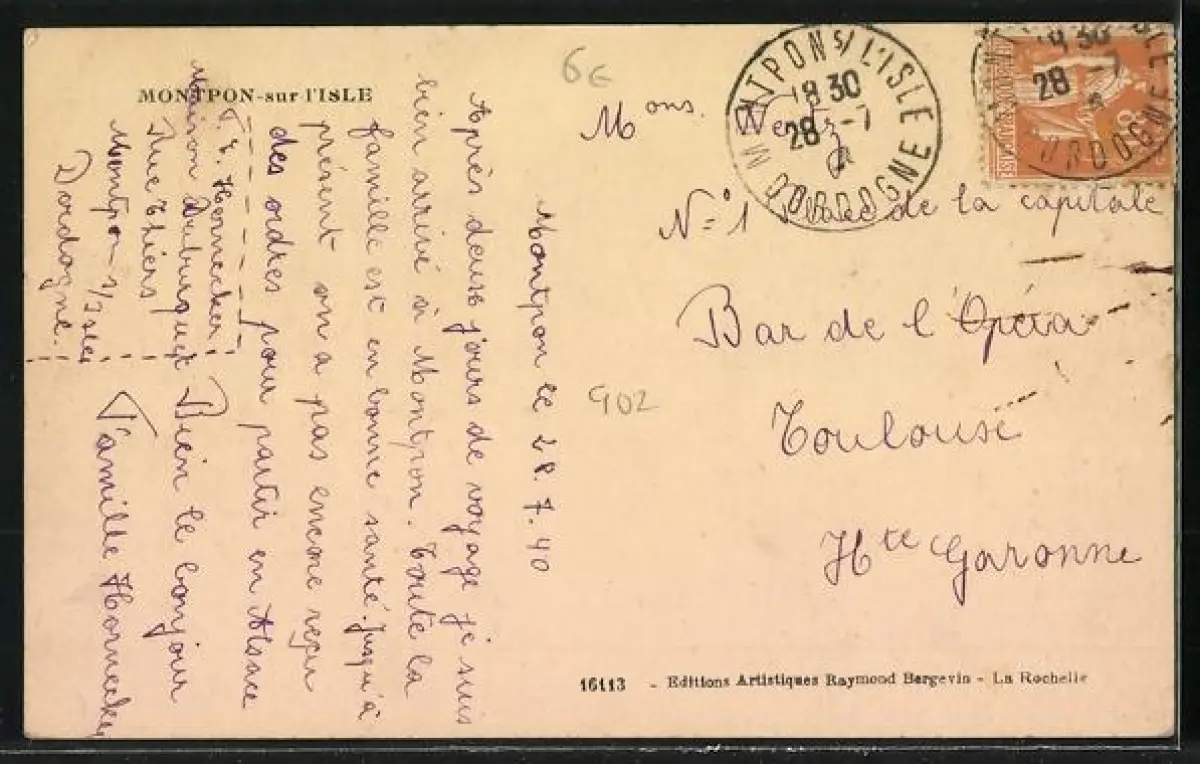 MONTPON-sur l'ISLE
Montpon le 28.7.40
Après deux jours de voyage je suis
bien arrivé à Montpon. Toute la
famille est en bonne santé. Jusqu'à
présent on a pas encore reçu
des ordres pour partir en Alsace
Bien le bonjour
Famille Hornecker
Hornecker
Rue Thiers
Montpon s/Isle
Dordogne.
6€
902
Mons.
N=° 1 Place de la capitale
Bar de l'Opéra
Toulouse
Hte Garonne
MONTPON S/ L'ISLE
18 30
28 -7
DORDOGNE
28 -7
DORDOGNE
16113 - Editions Artistiques Raymond Bergevin - La Rochelle